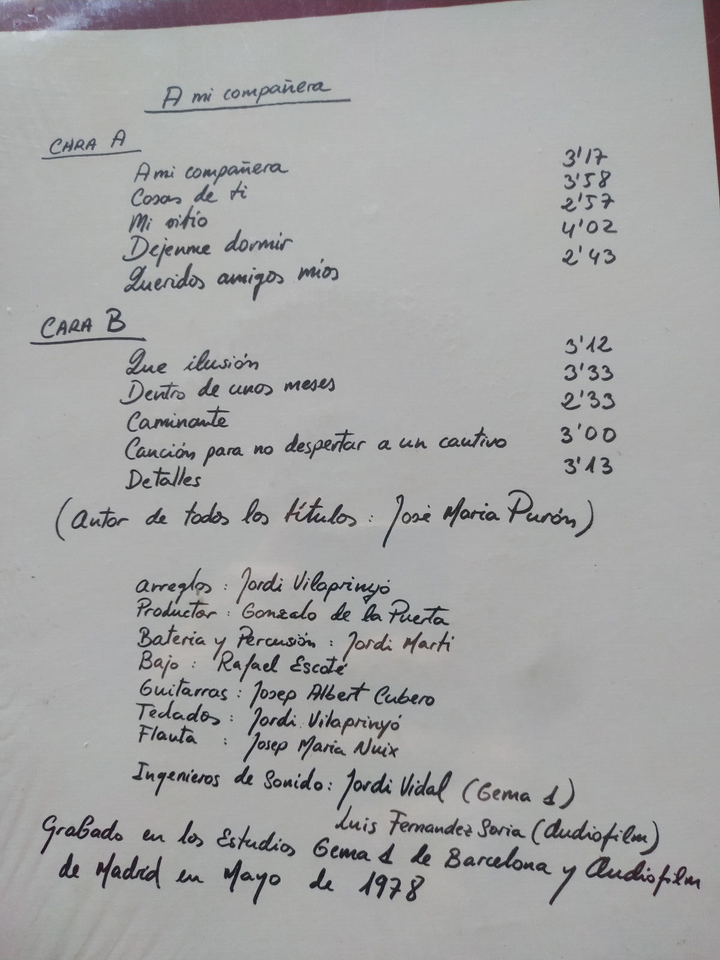 A mi compañera
CARA A
A mi compañera 3'17
Cosas de ti 3'58
Mi sitio 2'57
Dejenme dormir 4'02
Queridos amigos míos 2'43
CARA B
Que ilusión 3'12
Dentro de unos meses 3'33
Caminante 2'33
Canción para no despertar a un cautivo 3'00
Detalles 3'13
(Autor de todos los títulos : José Maria Purón)
Arreglos : Jordi Vilaprinyó
Productor : Gonzalo de la Puerta
Bateria y Percusión : Jordi Marti
Bajo : Rafael Escoté
Guitarras : Josep Albert Cubero
Teclados : Jordi Vilaprinyó
Flauta : Josep Maria Nuix
Ingenieros de Sonido : Jordi Vidal (Gema 1)
Luis Fernandez Soria (Audiofilm)
Grabado en los Estudios Gema 1 de Barcelona y Audiofilm
de Madrid en Mayo de 1978